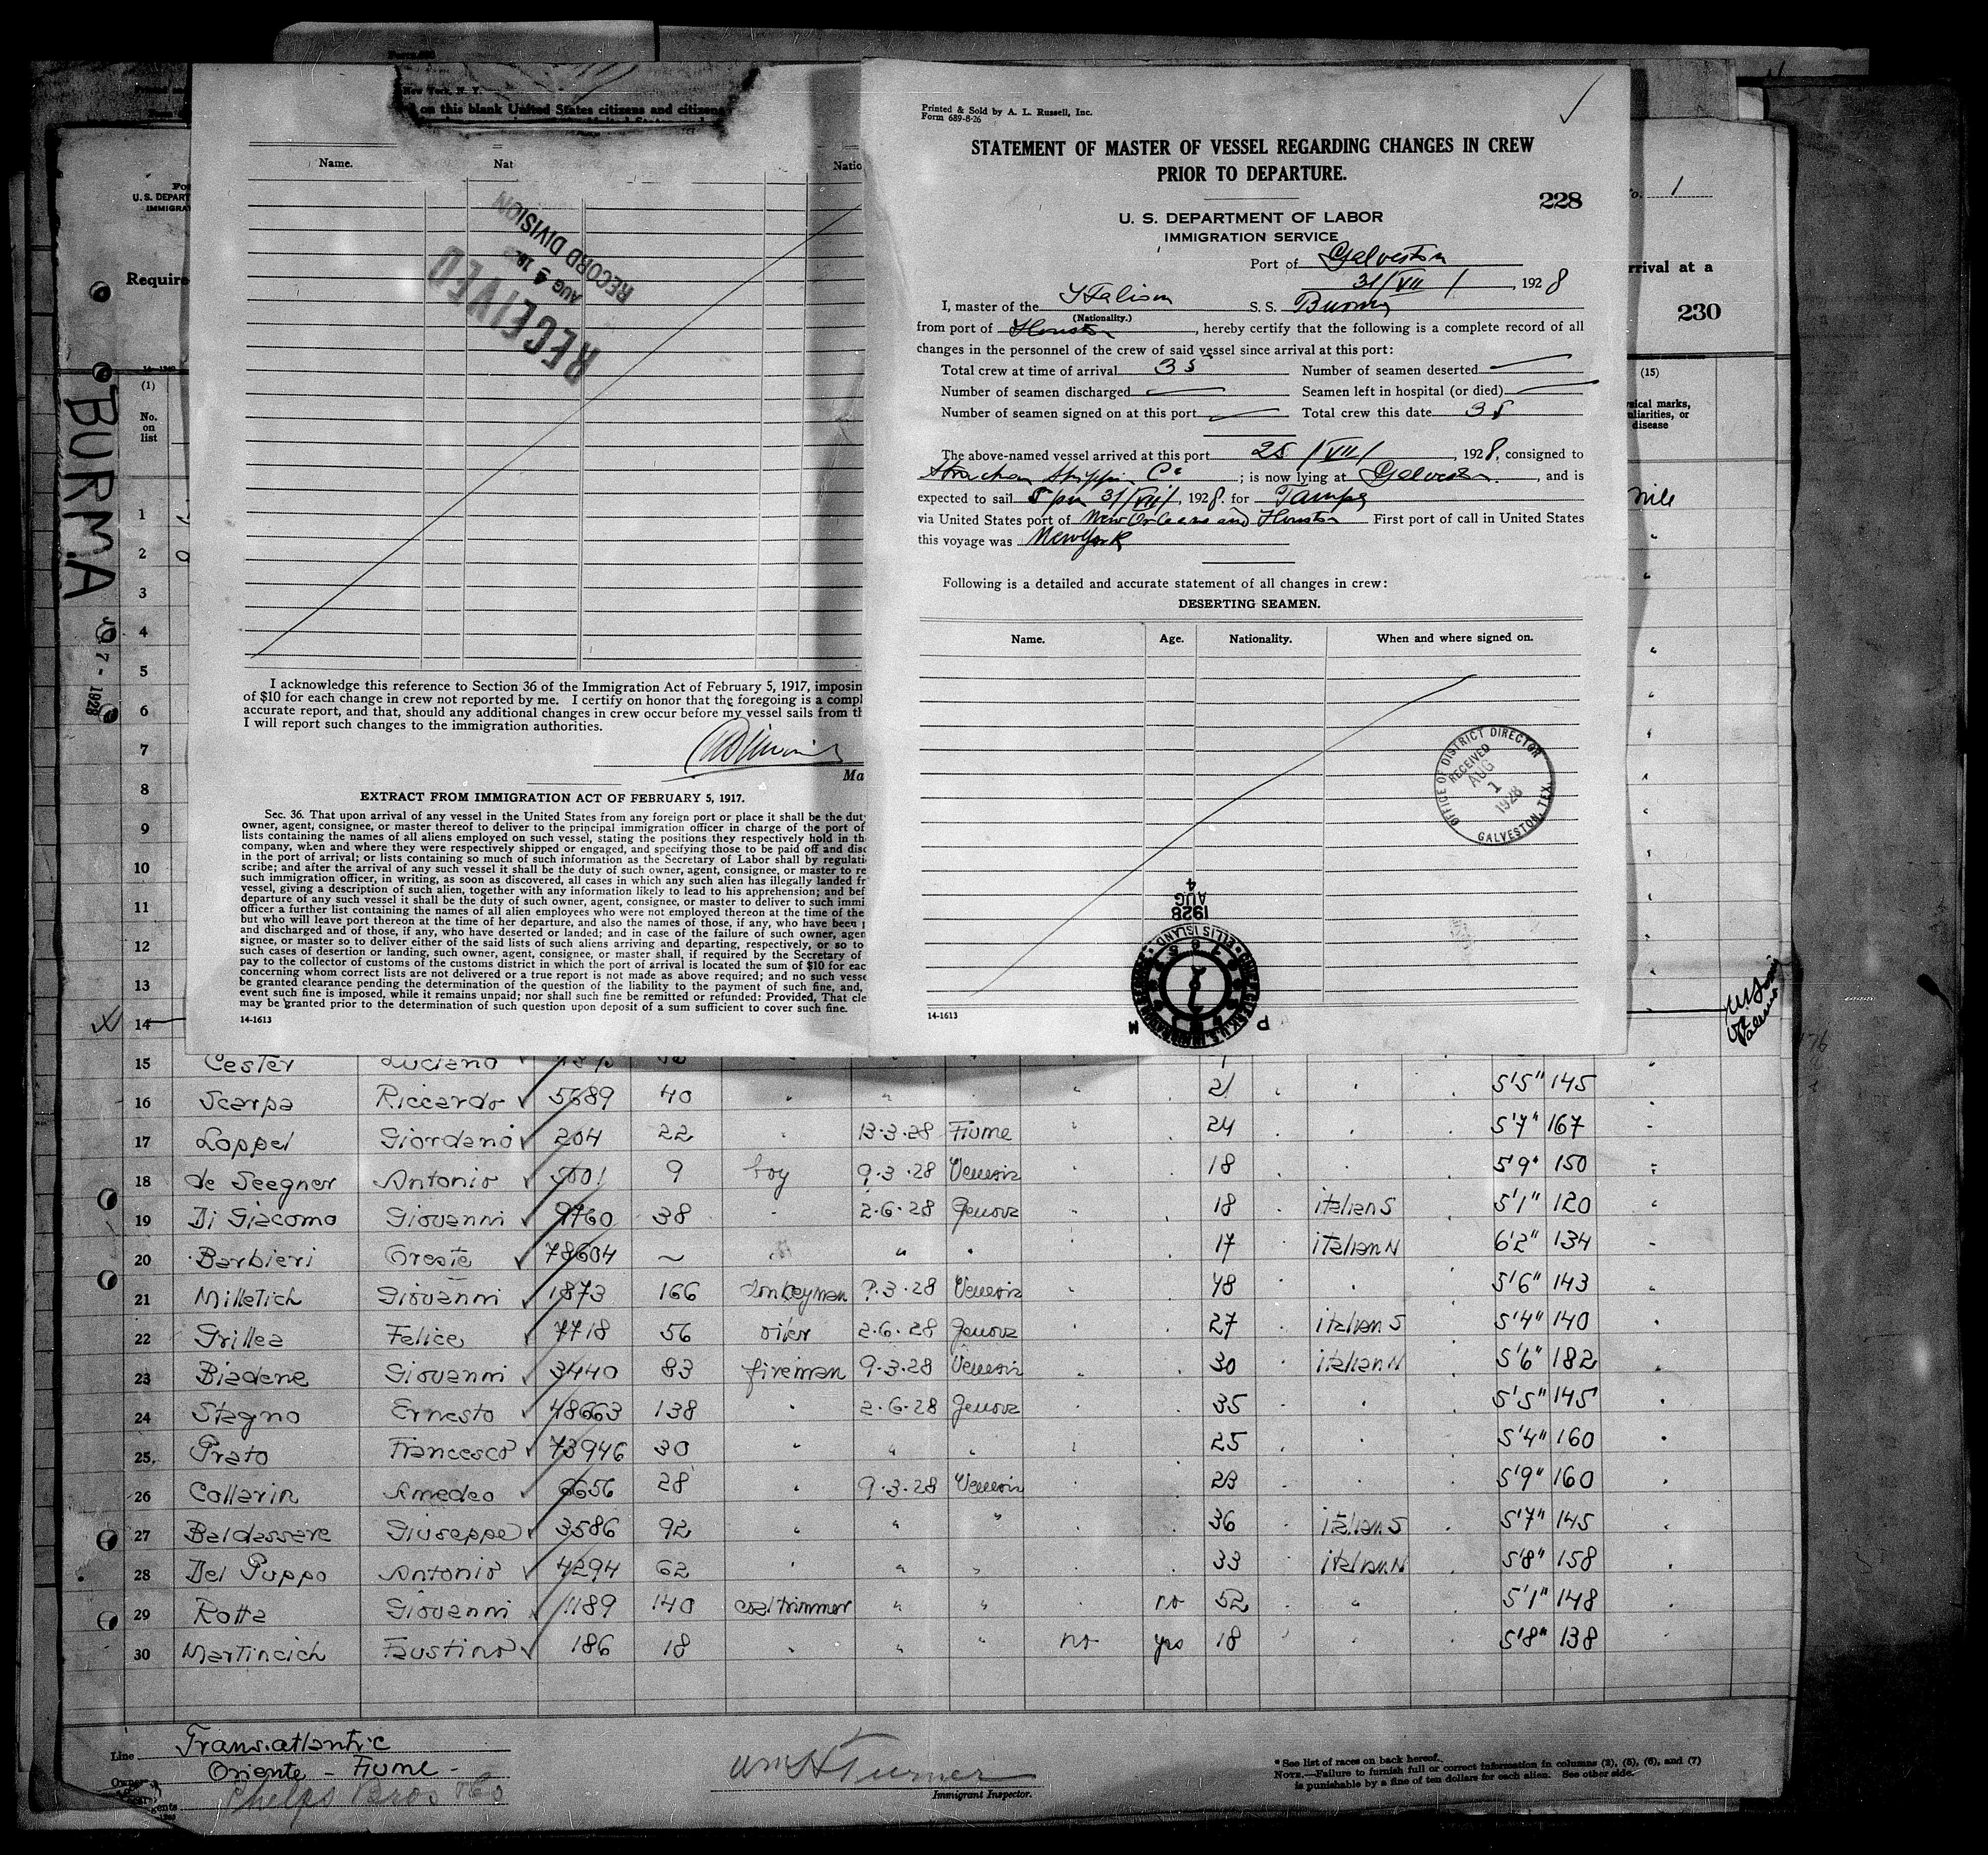 New York, N. Y.
on this blank United States citizens and citizens
Name. Nat Natio
RECEIVED
AUG 4
RECORD DIVISION
I acknowledge this reference to Section 36 of the Immigration Act of February 5, 1917, imposin
of $10 for each change in crew not reported by me. I certify on honor that the foregoing is a compl
accurate report, and that, should any additional changes in crew occur before my vessel sails from th
I will report such changes to the immigration authorities.
Ma
EXTRACT FROM IMMIGRATION ACT OF FEBRUARY 5, 1917.
Sec. 36. That upon arrival of any vessel in the United States from any foreign port or place it shall be the dut
owner, agent, consignee, or master thereof to deliver to the principal immigration officer in charge of the port of
lists containing the names of all aliens employed on such vessel, stating the positions they respectively hold in th
company, when and where they were respectively shipped or engaged, and specifying those to be paid off and disc
in the port of arrival; or lists containing so much of such information as the Secretary of Labor shall by regulati
scribe; and after the arrival of any such vessel it shall be the duty of such owner, agent, consignee, or master to re
such immigration officer, in writing, as soon as discovered, all cases in which any such alien has illegally landed fr
vessel, giving a description of such alien, together with any information likely to lead to his apprehension; and bef
departure of any such vessel it shall be the duty of such owner, agent, consignee, or master to deliver to such immi
officer a further list containing the names of all alien employees who were not employed thereon at the time of the
but who will leave port thereon at the time of her departure, and also the names of those, if any, who have been p
and discharged and of those, if any, who have deserted or landed; and in case of the failure of such owner, agen
signee, or master so to deliver either of the said lists of such aliens arriving and departing, respectively, or so to
such cases of desertion or landing, such owner, agent, consignee, or master shall, if required by the Secretary of
pay to the collector of customs of the customs district in which the port of arrival is located the sum of $10 for eac
concerning whom correct lists are not delivered or a true report is not made as above required; and no such vesse
be granted clearance pending the determination of the question of the liability to the payment of such fine, and,
event such fine is imposed, while it remains unpaid; nor shall such fine be remitted or refunded: Provided, That cle
may be granted prior to the determination of such question upon deposit of a sum sufficient to cover such fine.
14-1613
Printed & Sold by A. L. Russell, Inc.
Form 689-8-26
STATEMENT OF MASTER OF VESSEL REGARDING CHANGES IN CREW
PRIOR TO DEPARTURE.
228
U. S. DEPARTMENT OF LABOR
IMMIGRATION SERVICE
Port of Galveston
31/VII/, 1928
I, master of the Italian S. S. Burma
(Nationality.)
from port of Houston, hereby certify that the following is a complete record of all
changes in the personnel of the crew of said vessel since arrival at this port:
Total crew at time of arrival 35 Number of seamen deserted
Number of seamen discharged Seamen left in hospital (or died)
Number of seamen signed on at this port Total crew this date 35
The above-named vessel arrived at this port 25/VII/, 1928, consigned to
Strachan Shippin Co; is now lying at Galveston, and is
expected to sail 5 pm 31/VII/, 1928, for Tampa
via United States port of New Orleans and Houston First port of call in United States
this voyage was New York
Following is a detailed and accurate statement of all changes in crew:
DESERTING SEAMEN.
Name. Age. Nationality. When and where signed on.
OFFICE OF DISTRICT DIRECTOR
RECEIVED
AUG
1
1928
GALVESTON, TEX.
1928
AUG
4
ELLIS ISLAND
14-1613
U. S. DEPART
IMMIGRA
Require
No. 1
rrival at a
230
BURMA
7-1928
(1)
No.
on
list
(15)
sical marks,
uliarities, or
disease
1
2
3
4
5
6
7
8
9
10
11
12
13
14
15 Cester Luciano
16 Scarpa Riccardo 5689 40 21 5'5" 145
17 Loppel Giordano 204 22 13-3-28 Fiume 24 5'7" 167
18 de Seegner Antonio 5001 9 boy 9-3-28 Venezia 18 5'9" 150
19 Di Giacomo Giovanni 9760 38 " 2-6-28 Genova 18 italian S 5'1" 120
20 Barbieri Oreste 78604 ~ " " " 17 italian N 6'2" 134
21 Milletich Giovanni 1873 166 donkeyman 9-3-28 Venezia 48 5'6" 143
22 Grillea Felice 7718 56 oiler 2-6-28 Genova 27 italian S 5'4" 140
23 Biadene Giovanni 3440 83 fireman 9-3-28 Venezia 30 italian N 5'6" 182
24 Stagno Ernesto 48663 138 " 2-6-28 Genova 35 5'5" 145
25. Prato Francesco 73946 30 " " " 25 5'4" 160
26 Collarin Amedeo 6656 28 " 9-3-28 Venezia 23 5'9" 160
27 Baldassare Giuseppe 3586 92 " " " 36 italian S 5'7" 145
28 Del Puppo Antonio 4294 62 " " " 33 italian N 5'8" 158
29 Rotta Giovanni 1189 140 coaltrimmer " " no 52 " 5'1" 148
30 Martincich Faustino 186 18 " " " no yes 18 " 5'8" 138
Line Transatlantic
Oriente - Fiume -
Phelps Bros & Co
Wm H Turner
Immigrant Inspector.
* See list of races on back hereof.
NOTE.—Failure to furnish full or correct information in columns (3), (5), (6), and (7)
is punishable by a fine of ten dollars for each alien. See other side.